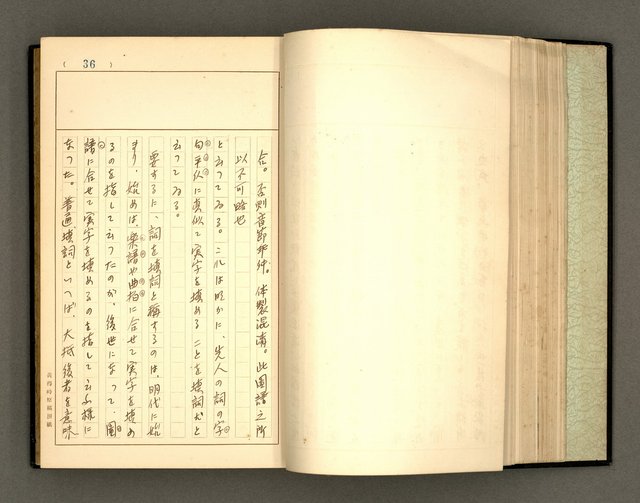 ( 36 )
合。否則音節乖舛。体製混淆。此圖譜之所
以不可略也
と云つてゐる。これは明かに、先人の詞の字
句平仄に真似て実字を填めることを填詞だと
云つてゐる。
要するに、詞を填詞と稱するのは、明代に始
まり、始めは、楽譜や曲拍に合せて実字を填め
るのを指して云つたのが、後世になつて、圖
譜に合せて実字を填めるのを指して云ふ様に
なつた。普通填詞といへば、大抵後者を意味